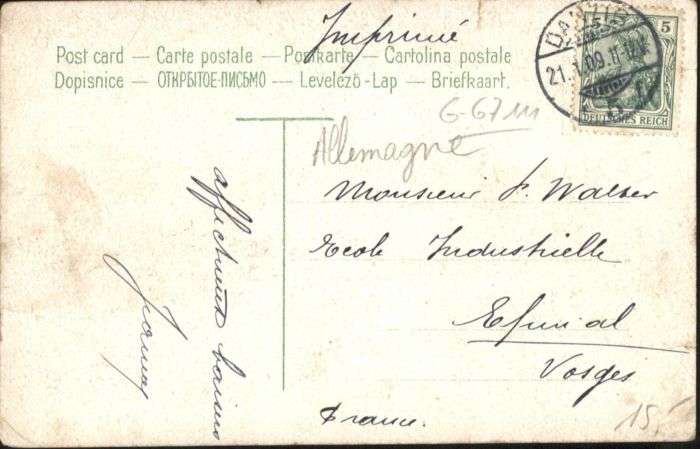 Imprimé
Post card — Carte postale — Postkarte — Cartolina postale
Dopisnice — ОТКРЫТОЕ-ПИСЬМО — Levelező-Lap — Briefkaart.
5
DEUTSCHES REICH
DANZIG
21.1.09.11-12V.
G-67 m
Allemagne
Monsieur P. Walser
Ecole Industrielle
Epinal
Vosges
France.
15,-